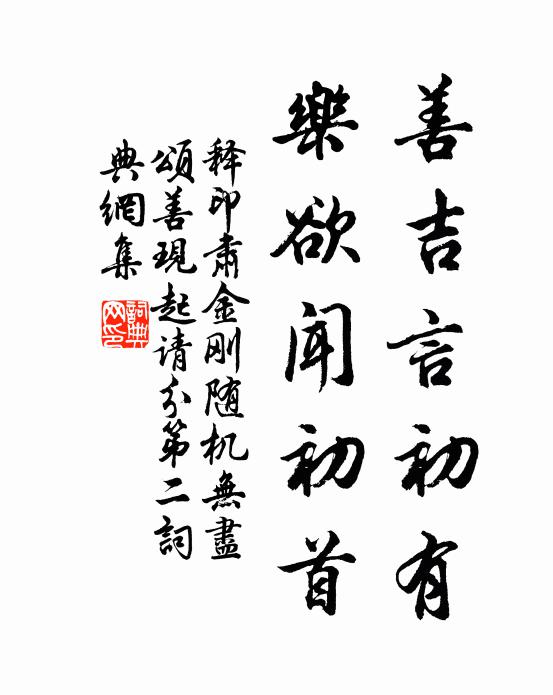 善吉言初有
樂欲聞初首
释印肅金刚随机無盡
頌善現起请分第二詞
典網集
詞典網印